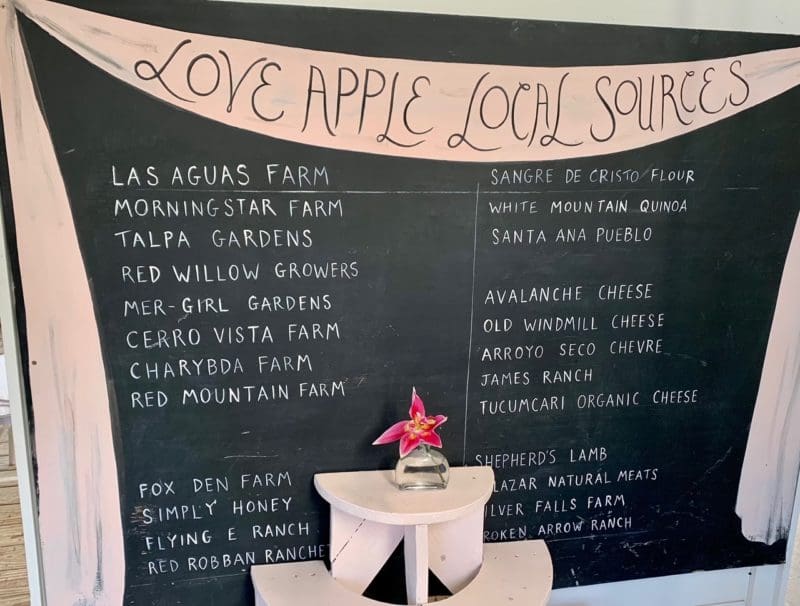 LOVE APPLE LOCAL SOURCES
LAS AGUAS FARM
MORNINGSTAR FARM
TALPA GARDENS
RED WILLOW GROWERS
MER-GIRL GARDENS
CERRO VISTA FARM
CHARYBDA FARM
RED MOUNTAIN FARM
FOX DEN FARM
SIMPLY HONEY
FLYING E RANCH
RED ROBBAN RANCHE
SANGRE DE CRISTO FLOUR
WHITE MOUNTAIN QUINOA
SANTA ANA PUEBLO
AVALANCHE CHEESE
OLD WINDMILL CHEESE
ARROYO SECO CHEVRE
JAMES RANCH
TUCUMCARI ORGANIC CHEESE
SHEPHERD'S LAMB
LAZAR NATURAL MEATS
ILVER FALLS FARM
ROKEN ARROW RANCH